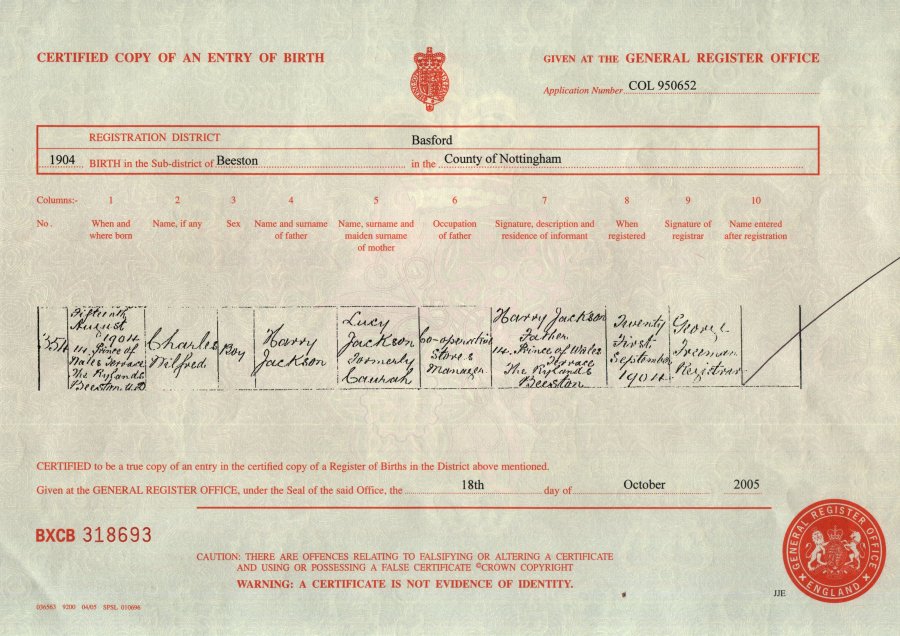 CERTIFIED COPY OF AN ENTRY OF BIRTH
GIVEN AT THE GENERAL REGISTER OFFICE
Application Number COL 950652
REGISTRATION DISTRICT Basford
1904 BIRTH in the Sub-district of Beeston in the County of Nottingham
Columns:- 1 2 3 4 5 6 7 8 9 10
No. When and where born Name, if any Sex Name and surname of father Name, surname and maiden surname of mother Occupation of father Signature, description and residence of informant When registered Signature of registrar Name entered after registration
354
Fifteenth
August
1904
14. Prince of
Wales Terrace
The Rylands
Beeston U.D
Charles
Wilfred
Boy
Harry
Jackson
Lucy
Jackson
formerly
Co-operative
Stores
Manager
Harry Jackson
Father
14. Prince of Wales
Terrace
The Rylands
Beeston
Twenty
First
September
1904
George
Freeman
Registrar
CERTIFIED to be a true copy of an entry in the certified copy of a Register of Births in the District above mentioned.
Given at the GENERAL REGISTER OFFICE, under the Seal of the said Office, the 18th day of October 2005
BXCB 318693
CAUTION: THERE ARE OFFENCES RELATING TO FALSIFYING OR ALTERING A CERTIFICATE
AND USING OR POSSESSING A FALSE CERTIFICATE ©CROWN COPYRIGHT
WARNING: A CERTIFICATE IS NOT EVIDENCE OF IDENTITY.
GENERAL REGISTER OFFICE
ENGLAND
JJE
036563 9200 04/05 SPSL 010696